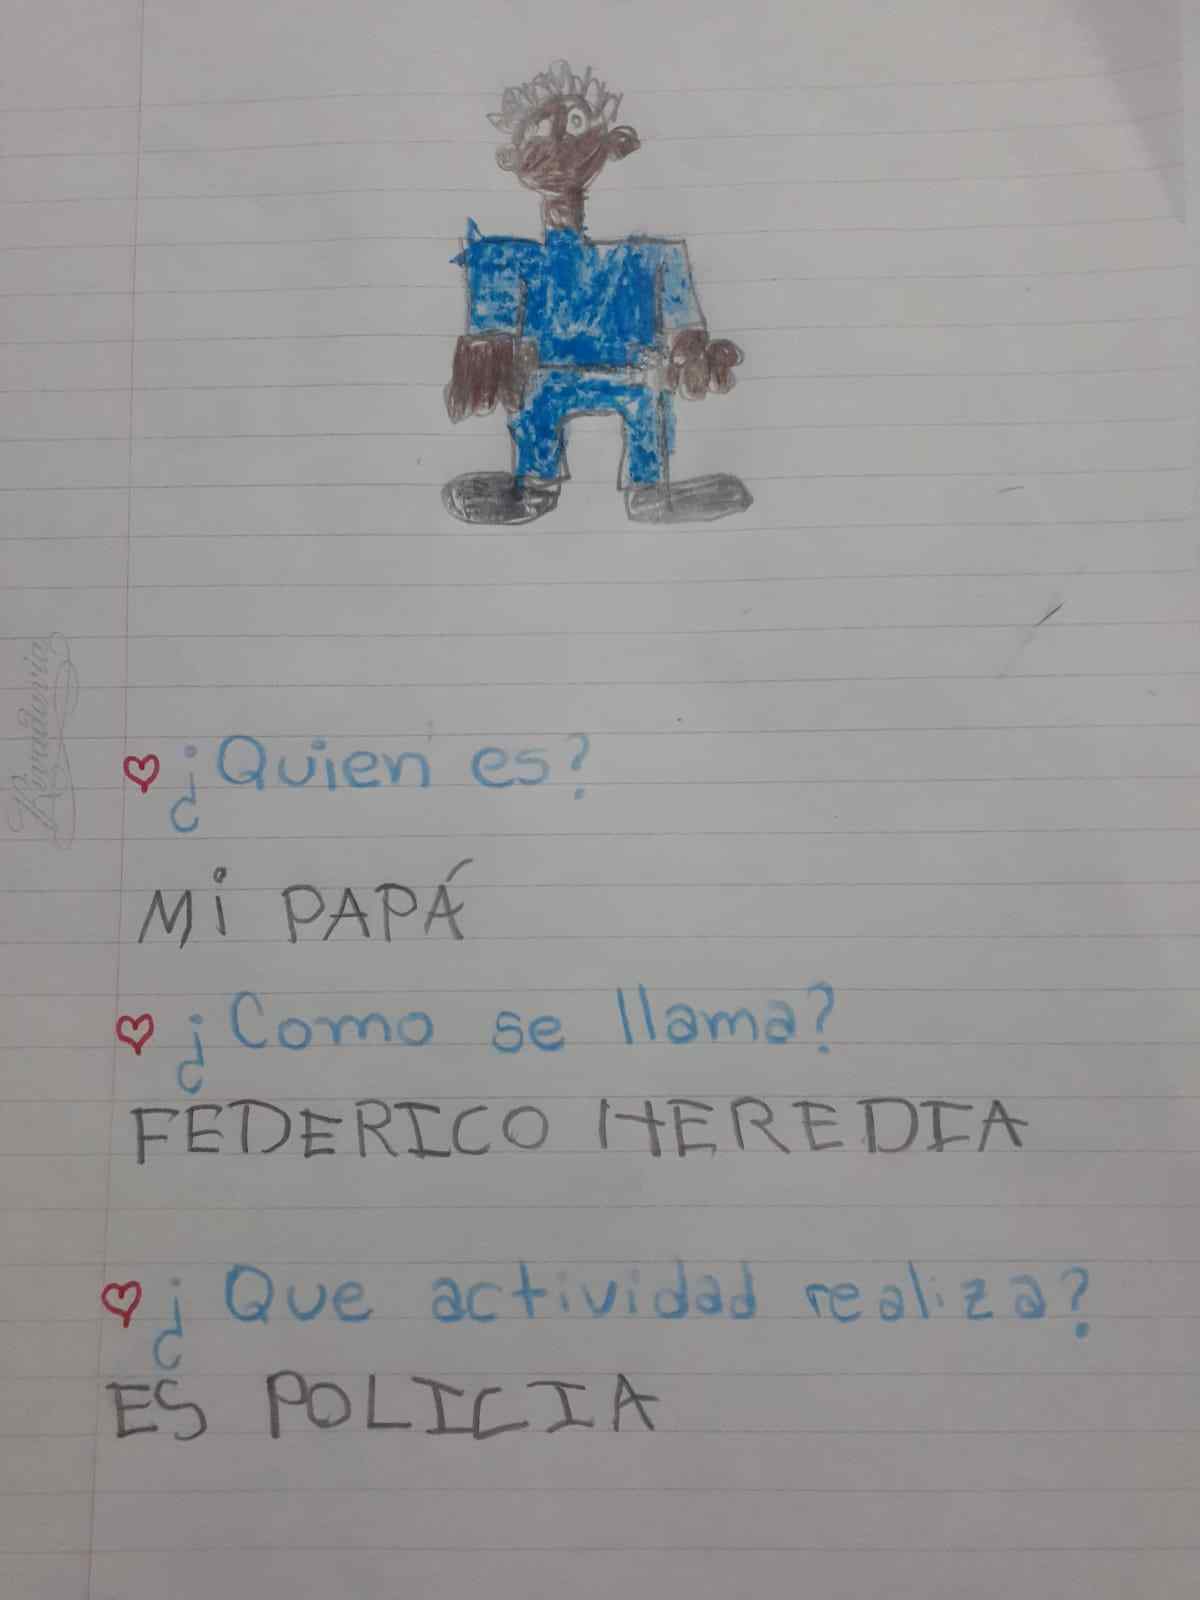 ¿Quien es?
Mi PAPÁ
¿Como se llama?
FEDERICO HEREDIA
¿Que actividad realiza?
ES POLICIA
Rivadavia